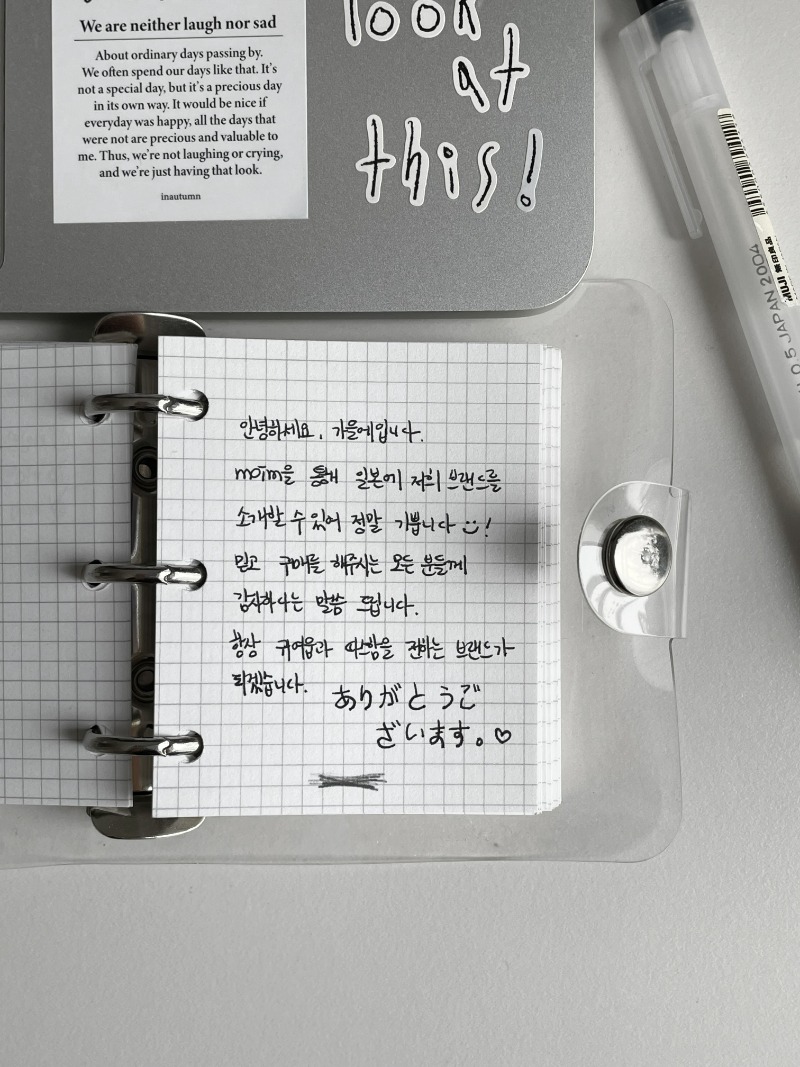 We are neither laugh nor sad
About ordinary days passing by.
We often spend our days like that. It's
not a special day, but it's a precious day
in its own way. It would be nice if
everyday was happy, all the days that
were not are precious and valuable to
me. Thus, we're not laughing or crying,
and we're just having that look.
inautumn
look
at
this!
MUJI 無印良品
0.5 JAPAN 2004
안녕하세요. 가을에입니다.
moim을 통해 일본에 저희 브랜드를
소개할 수 있어 정말 기쁩니다 :)!
믿고 구매를 해주시는 모든 분들께
감사하다는 말씀 드립니다.
항상 귀여움과 따스함을 전하는 브랜드가
되겠습니다.
ありがとうご
ざいます。♡